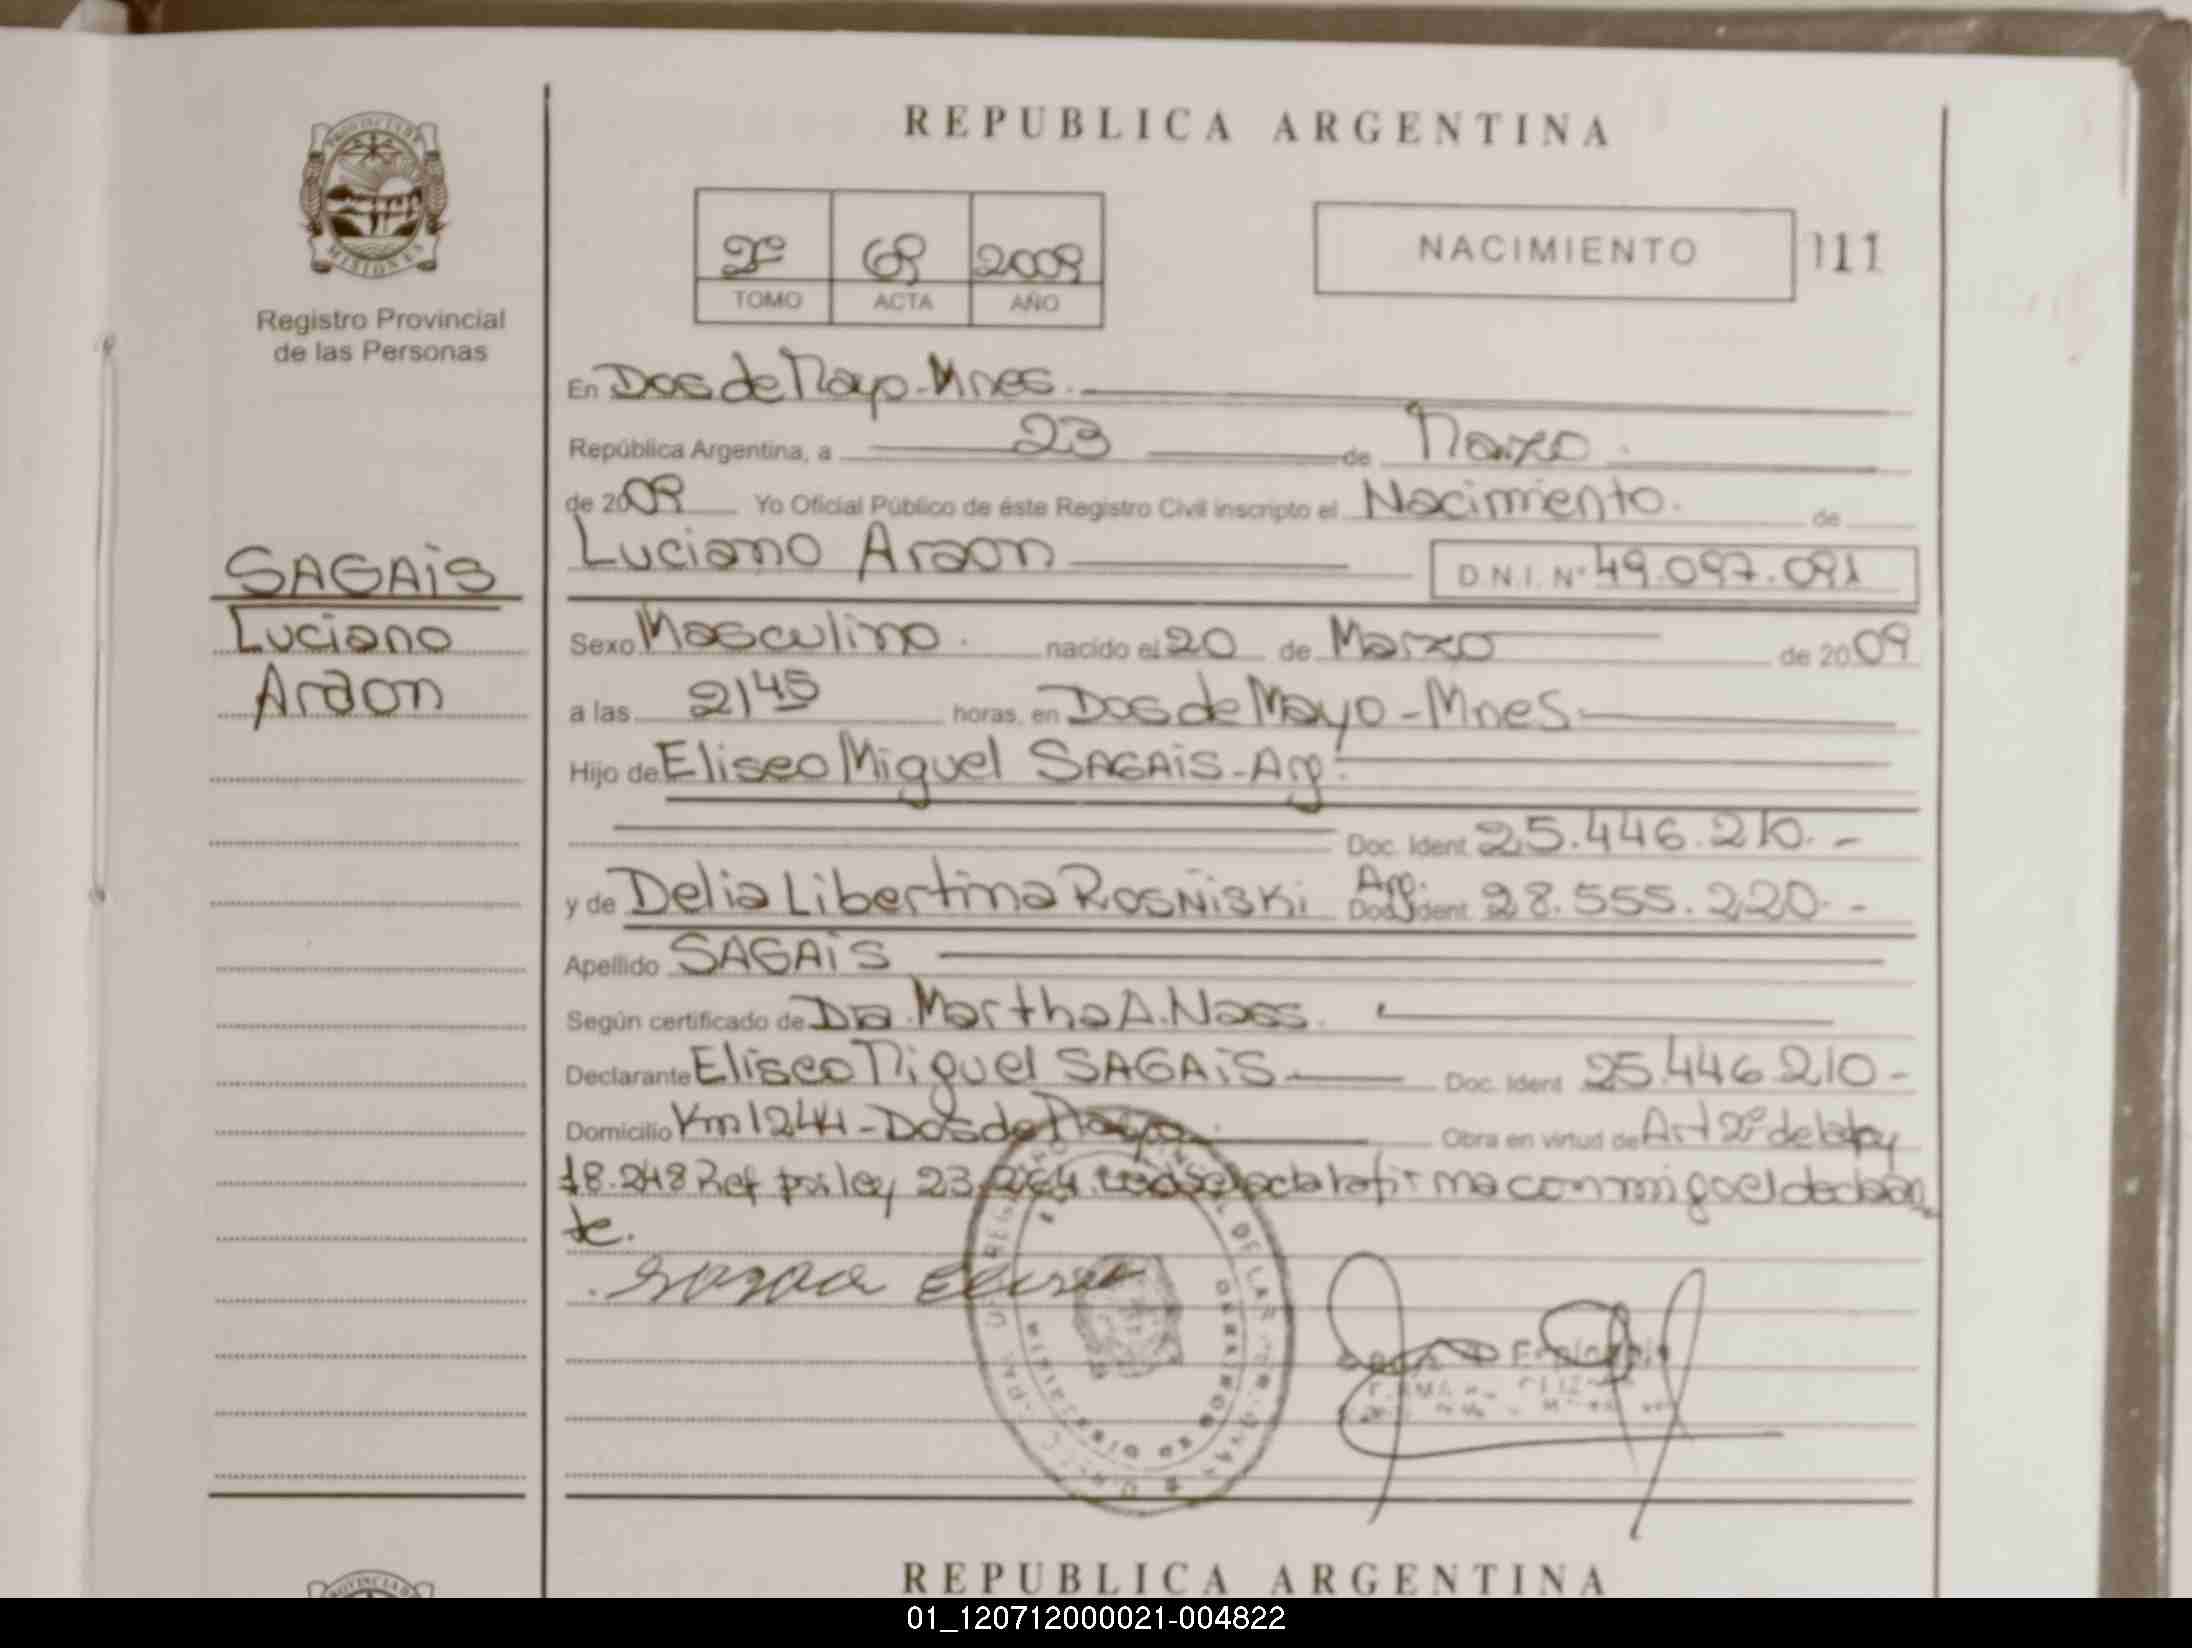 REPUBLICA ARGENTINA
PROVINCIA DE
MISIONES
Registro Provincial
de las Personas
2º 69 2009
TOMO ACTA AÑO
NACIMIENTO 111
En Dos de Mayo-Mnes.
República Argentina, a 23 de Marzo.
de 2009 Yo Oficial Público de éste Registro Civil inscripto el Nacimiento. de
Luciano Araon D.N.I. Nº 49.097.091
SAGAiS
Luciano
Araon
Sexo Masculino. nacido el 20 de Marzo de 2009
a las 21 45 horas. en Dos de Mayo-Mnes.
Hijo de Eliseo Miguel SAGAiS-Arg.
Doc. Ident. 25.446.210.-
y de Delia Libertina ROSÑiSKi Arg. Doc. Ident. 28.555.220.-
Apellido SAGAiS
Según certificado de Dra. Martha A. Naces.
Declarante Eliseo Miguel SAGAiS Doc. Ident. 25.446.210-
Domicilio Km 1244-Dos de Mayo. Obra en virtud de Art 2º de la ley
18.248 Ref por ley 23.264. Leída el acta la firma conmigo el declaran
te.
REPUBLICA ARGENTINA
PROVINCIA D
01_120712000021-004822